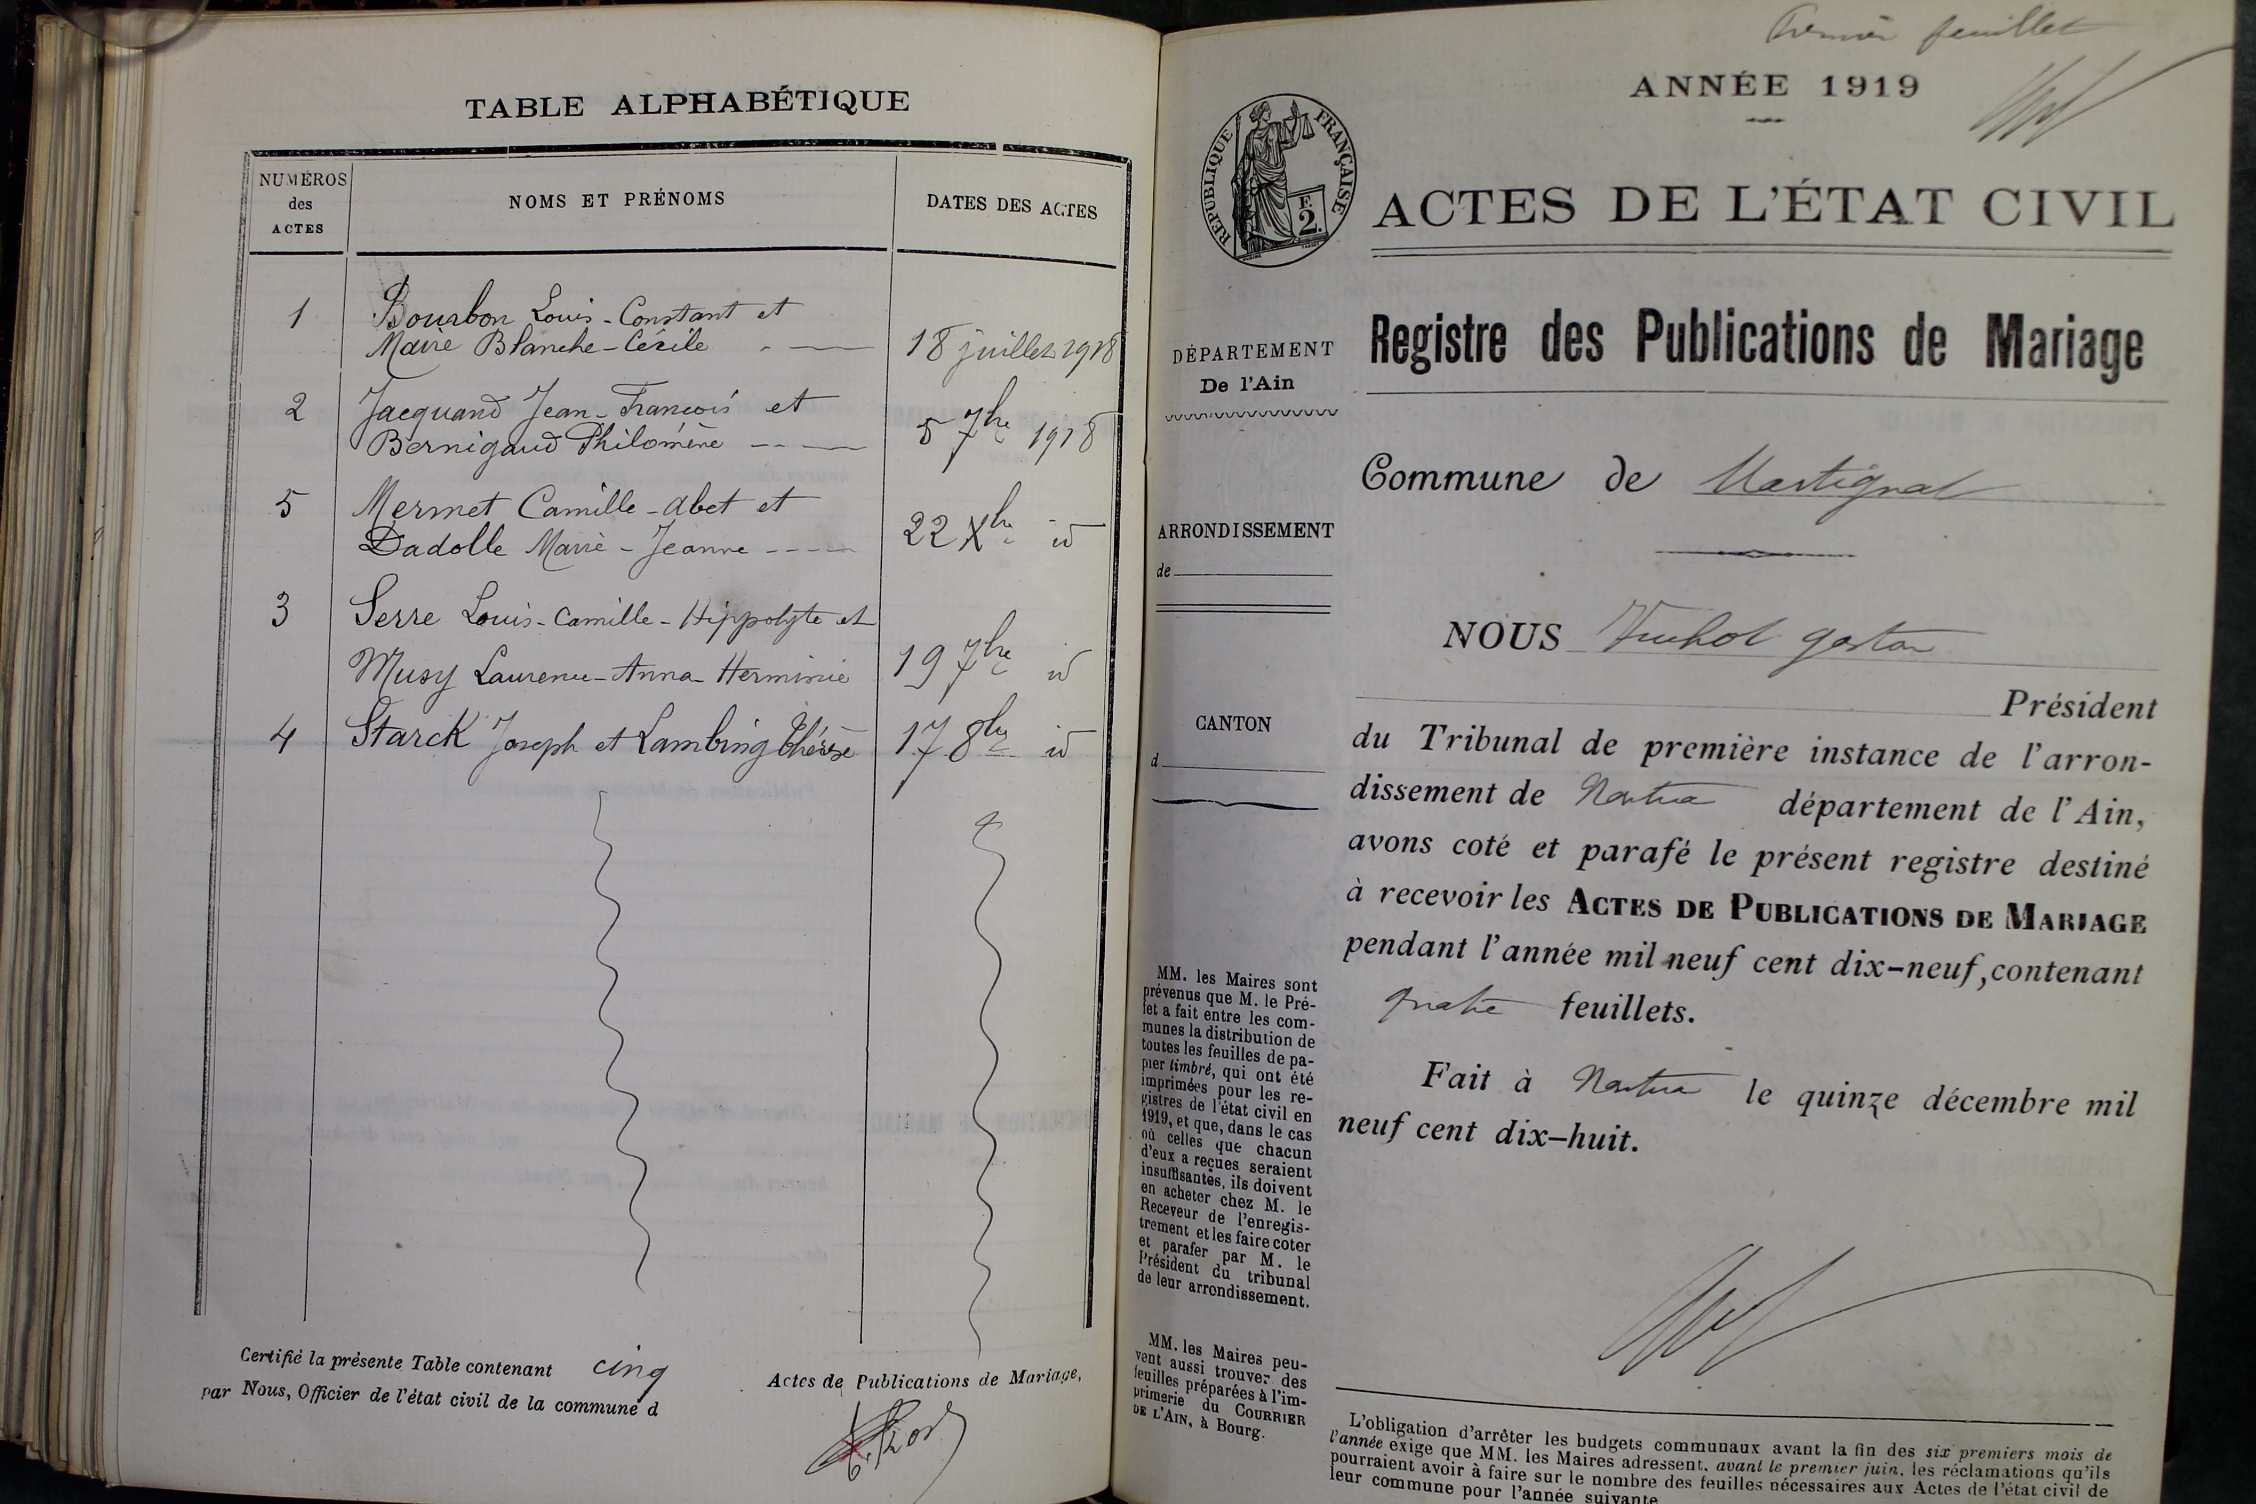 TABLE ALPHABÉTIQUE
NUMÉROS
des
ACTES
NOMS ET PRÉNOMS
DATES DES ACTES
1 Bourbon Louis-Constant et
Marie Blanche-Cécile 18 juillet 1918
2 Jacquand Jean-François et
Bernigaud Philomène 5 7bre 1918
5 Mermet Camille-Abet et
Dadolle Marie-Jeanne 22 Xbre id
3 Serre Louis-Camille-Hippolyte et
Musy Laurence-Anna-Herminie 19 7bre id
4 Starck Joseph et Lambing Thérèse 17 8bre id
Certifié la présente Table contenant cinq Actes de Publications de Mariage,
par Nous, Officier de l'état civil de la commune d
Premier feuillet
ANNÉE 1919
RÉPUBLIQUE FRANÇAISE
F.
2.
ACTES DE L'ÉTAT CIVIL
Registre des Publications de Mariage
DÉPARTEMENT
De l'Ain
Commune de Martignat
ARRONDISSEMENT
de
CANTON
d
NOUS Gaston
Président
du Tribunal de première instance de l'arron-
dissement de Nantua département de l'Ain,
avons coté et parafé le présent registre destiné
à recevoir les ACTES DE PUBLICATIONS DE MARIAGE
pendant l'année mil neuf cent dix-neuf, contenant
quatre feuillets.
Fait à Nantua le quinze décembre mil
neuf cent dix-huit.
MM. les Maires sont
prévenus que M. le Pré-
fet a fait entre les com-
munes la distribution de
toutes les feuilles de pa-
pier timbré, qui ont été
imprimées pour les re-
gistres de l'état civil en
1919, et que, dans le cas
où celles que chacun
d'eux a reçues seraient
insuffisantes, ils doivent
en acheter chez M. le
Receveur de l'enregis-
trement et les faire coter
et parafer par M. le
Président du tribunal
de leur arrondissement.
MM. les Maires peu-
vent aussi trouver des
feuilles préparées à l'im-
primerie du COURRIER
DE L'AIN, à Bourg.
L'obligation d'arrêter les budgets communaux avant la fin des six premiers mois de
l'année exige que MM. les Maires adressent, avant le premier juin, les réclamations qu'ils
pourraient avoir à faire sur le nombre des feuilles nécessaires aux Actes de l'état civil de
leur commune pour l'année suivante